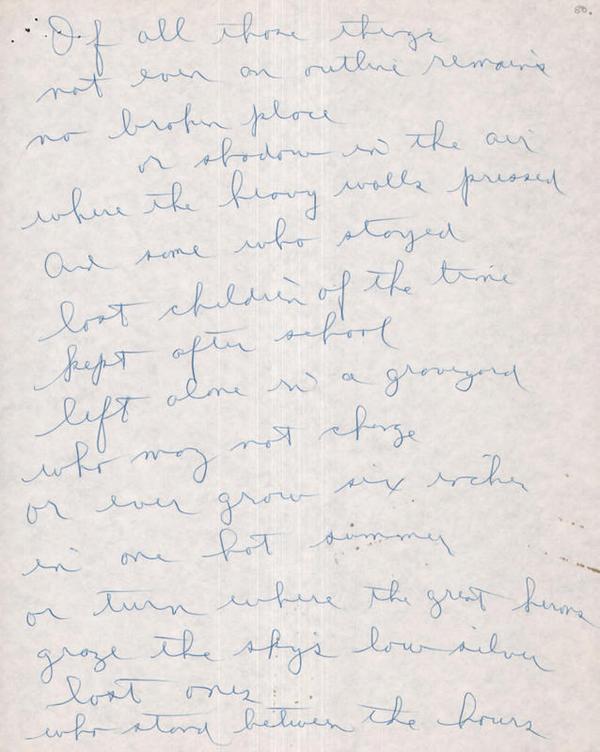 80.
Of all those things
not even an outline remains
no broken place
or shadow in the air
where the heavy walls pressed
And some who stayed
lost children of the time
kept after school
left alone in a graveyard
who may not change
or ever grow six inches
in one hot summer
or turn where the great herons
graze the sky's low silver
lost ones
who stand between the hours